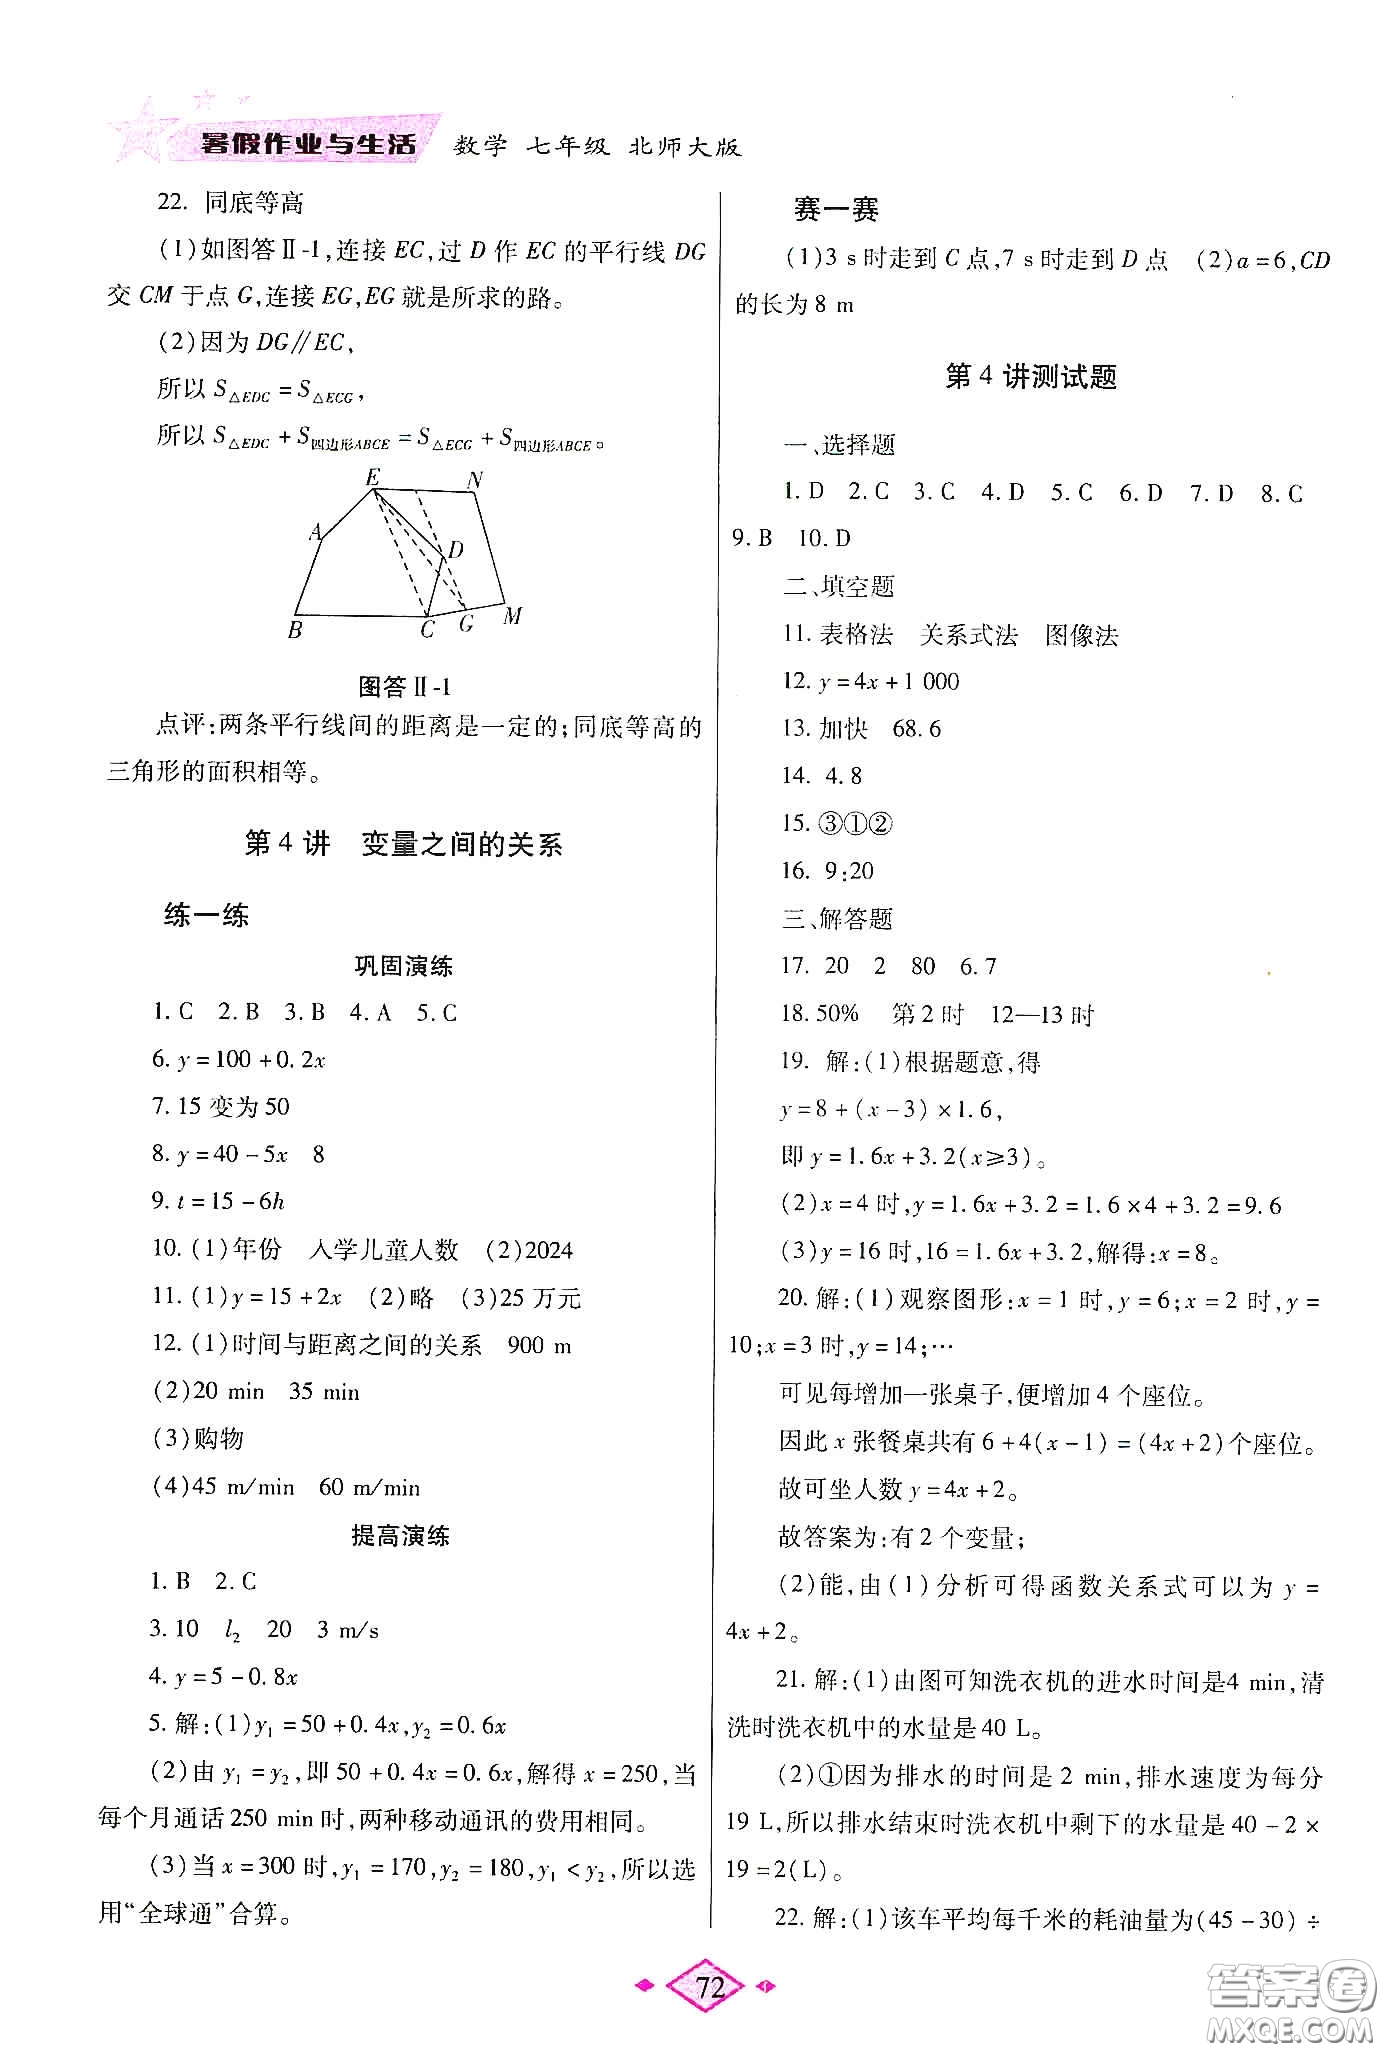 暑假作业与生活 数学 七年级 北师大版
22. 同底等高
(1)如图答Ⅱ-1,连接 EC,过 D 作 EC 的平行线 DG
交 CM 于点 G,连接 EG,EG 就是所求的路。
(2)因为 DG∥EC,
所以 S△EDC = S△ECG,
所以 S△EDC + S四边形ABCE = S△ECG + S四边形ABCE。
E
N
A
D
B
C
G
M
图答Ⅱ-1
点评:两条平行线间的距离是一定的;同底等高的
三角形的面积相等。
第 4 讲 变量之间的关系
练一练
巩固演练
1. C 2. B 3. B 4. A 5. C
6. y = 100 + 0. 2x
7. 15 变为 50
8. y = 40 - 5x 8
9. t = 15 - 6h
10. (1)年份 入学儿童人数 (2)2024
11. (1)y = 15 + 2x (2)略 (3)25 万元
12. (1)时间与距离之间的关系 900 m
(2)20 min 35 min
(3)购物
(4)45 m/min 60 m/min
提高演练
1. B 2. C
3. 10 l₂ 20 3 m/s
4. y = 5 - 0. 8x
5. 解:(1)y₁ = 50 + 0. 4x,y₂ = 0. 6x
(2)由 y₁ = y₂,即 50 + 0. 4x = 0. 6x,解得 x = 250,当
每个月通话 250 min 时,两种移动通讯的费用相同。
(3)当 x = 300 时,y₁ = 170,y₂ = 180,y₁ < y₂,所以选
用“全球通”合算。
赛一赛
(1)3 s 时走到 C 点,7 s 时走到 D 点 (2)a = 6,CD
的长为 8 m
第 4 讲测试题
一、选择题
1. D 2. C 3. C 4. D 5. C 6. D 7. D 8. C
9. B 10. D
二、填空题
11. 表格法 关系式法 图像法
12. y = 4x + 1 000
13. 加快 68. 6
14. 4. 8
15. ③①②
16. 9:20
三、解答题
17. 20 2 80 6. 7
18. 50% 第 2 时 12—13 时
19. 解:(1)根据题意,得
y = 8 + (x - 3) × 1. 6,
即 y = 1. 6x + 3. 2(x≥3)。
(2)x = 4 时,y = 1. 6x + 3. 2 = 1. 6 × 4 + 3. 2 = 9. 6
(3)y = 16 时,16 = 1. 6x + 3. 2,解得:x = 8。
20. 解:(1)观察图形:x = 1 时,y = 6;x = 2 时,y =
10;x = 3 时,y = 14;…
可见每增加一张桌子,便增加 4 个座位。
因此 x 张餐桌共有 6 + 4(x - 1) = (4x + 2)个座位。
故可坐人数 y = 4x + 2。
故答案为:有 2 个变量;
(2)能,由(1)分析可得函数关系式可以为 y =
4x + 2。
21. 解:(1)由图可知洗衣机的进水时间是4 min,清
洗时洗衣机中的水量是 40 L。
(2)①因为排水的时间是 2 min,排水速度为每分
19 L,所以排水结束时洗衣机中剩下的水量是 40 - 2 ×
19 = 2(L)。
22. 解:(1)该车平均每千米的耗油量为(45 - 30) ÷
72
答案圈
MXQE.COM